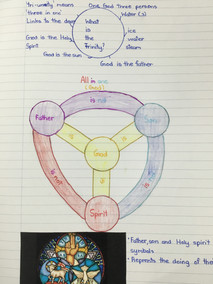 'tri-unity' means
'three in one'
One God Three persons
Links to the
Water (3)
What
is
the
Trinity?
ice
water
steam
God is the Holy
Spirit
God is the son
God is the father
All in one
(God)
Father
is not
Son
is
is
God
is not
is not
is
Spirit
Father, son and Holy spirit
symbols
the doing of the